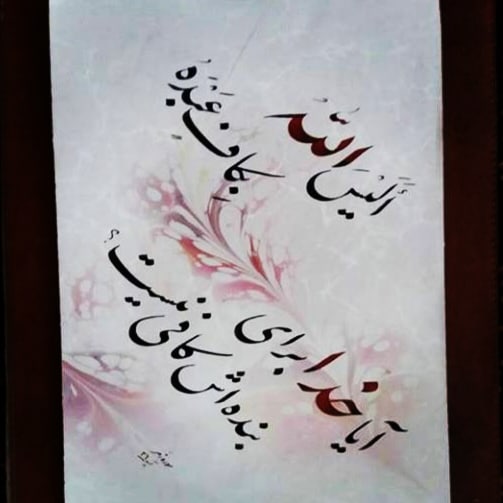 أَلَيْسَ اللهُ
بِكَافٍ عَبْدَهُ
آیا خدا برای
بنده اش کافی نیست؟